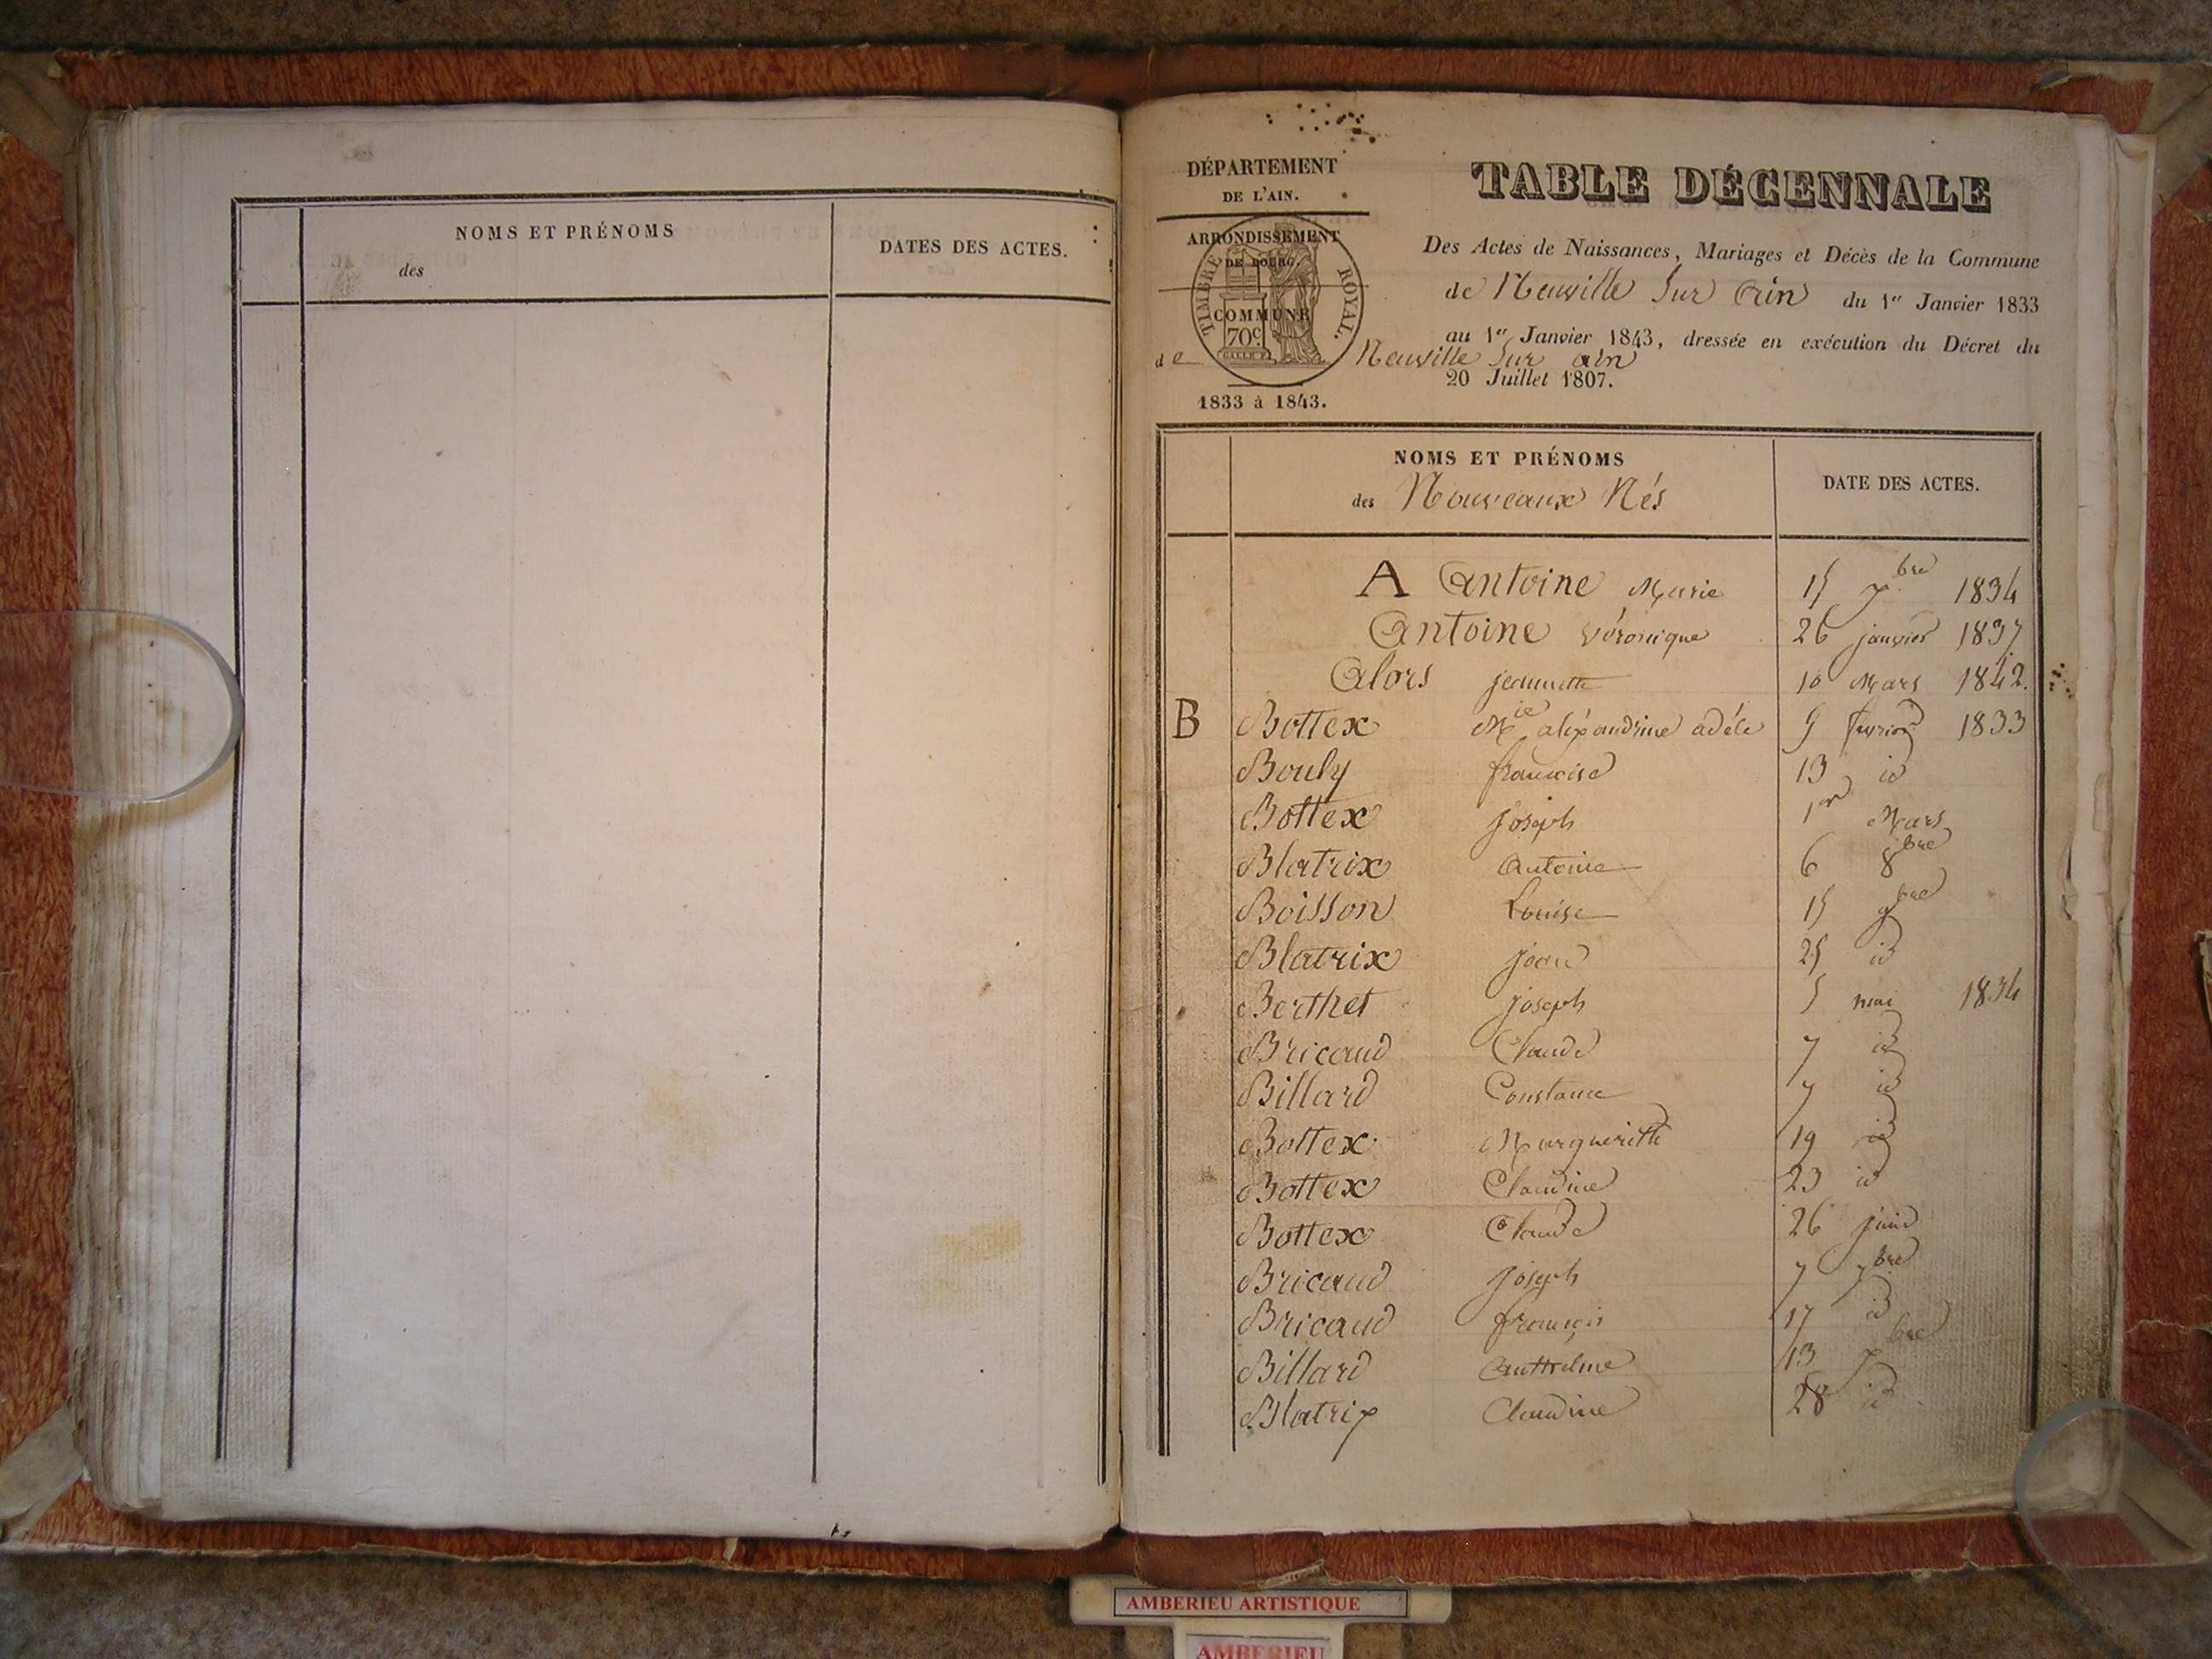 NOMS ET PRÉNOMS
des
DATES DES ACTES.
DÉPARTEMENT
DE L'AIN.
ARRONDISSEMENT
DE BOURG.
COMMUNE
de Neuville Sur ain
1833 à 1843.
TIMBRE ROYAL.
70c
TABLE DÉCENNALE
Des Actes de Naissances, Mariages et Décès de la Commune
de Neuville Sur Ain du 1er Janvier 1833
au 1er Janvier 1843, dressée en exécution du Décret du
20 Juillet 1807.
NOMS ET PRÉNOMS
des Nouveaux Nés
DATE DES ACTES.
A Antoine Marie 15 7bre 1834
Antoine véronique 26 janvier 1837
Alors jeannette 10 Mars 1842.
B Bottex Mie aléxandrine adéle 9 fevrier 1833
Bouly francoise 13 id
Bottex Joseph 1er Mars
Blatrix Antoine 6 8bre
Boisson Louise 15 9bre
Blatrix jean 25 id
Berthet joseph 5 mai 1834
Bricaud Claude 7 id
Billard Constance 7 id
Bottex Margueritte 19 id
Bottex Claudine 23 id
Bottex Claude 26 juin
Bricaud Joseph 7 7bre
Bricaud françois 17 id
Billard Anthelme 13 bre
Blatrix Claudine 28 id
AMBERIEU ARTISTIQUE
AMBERIEU